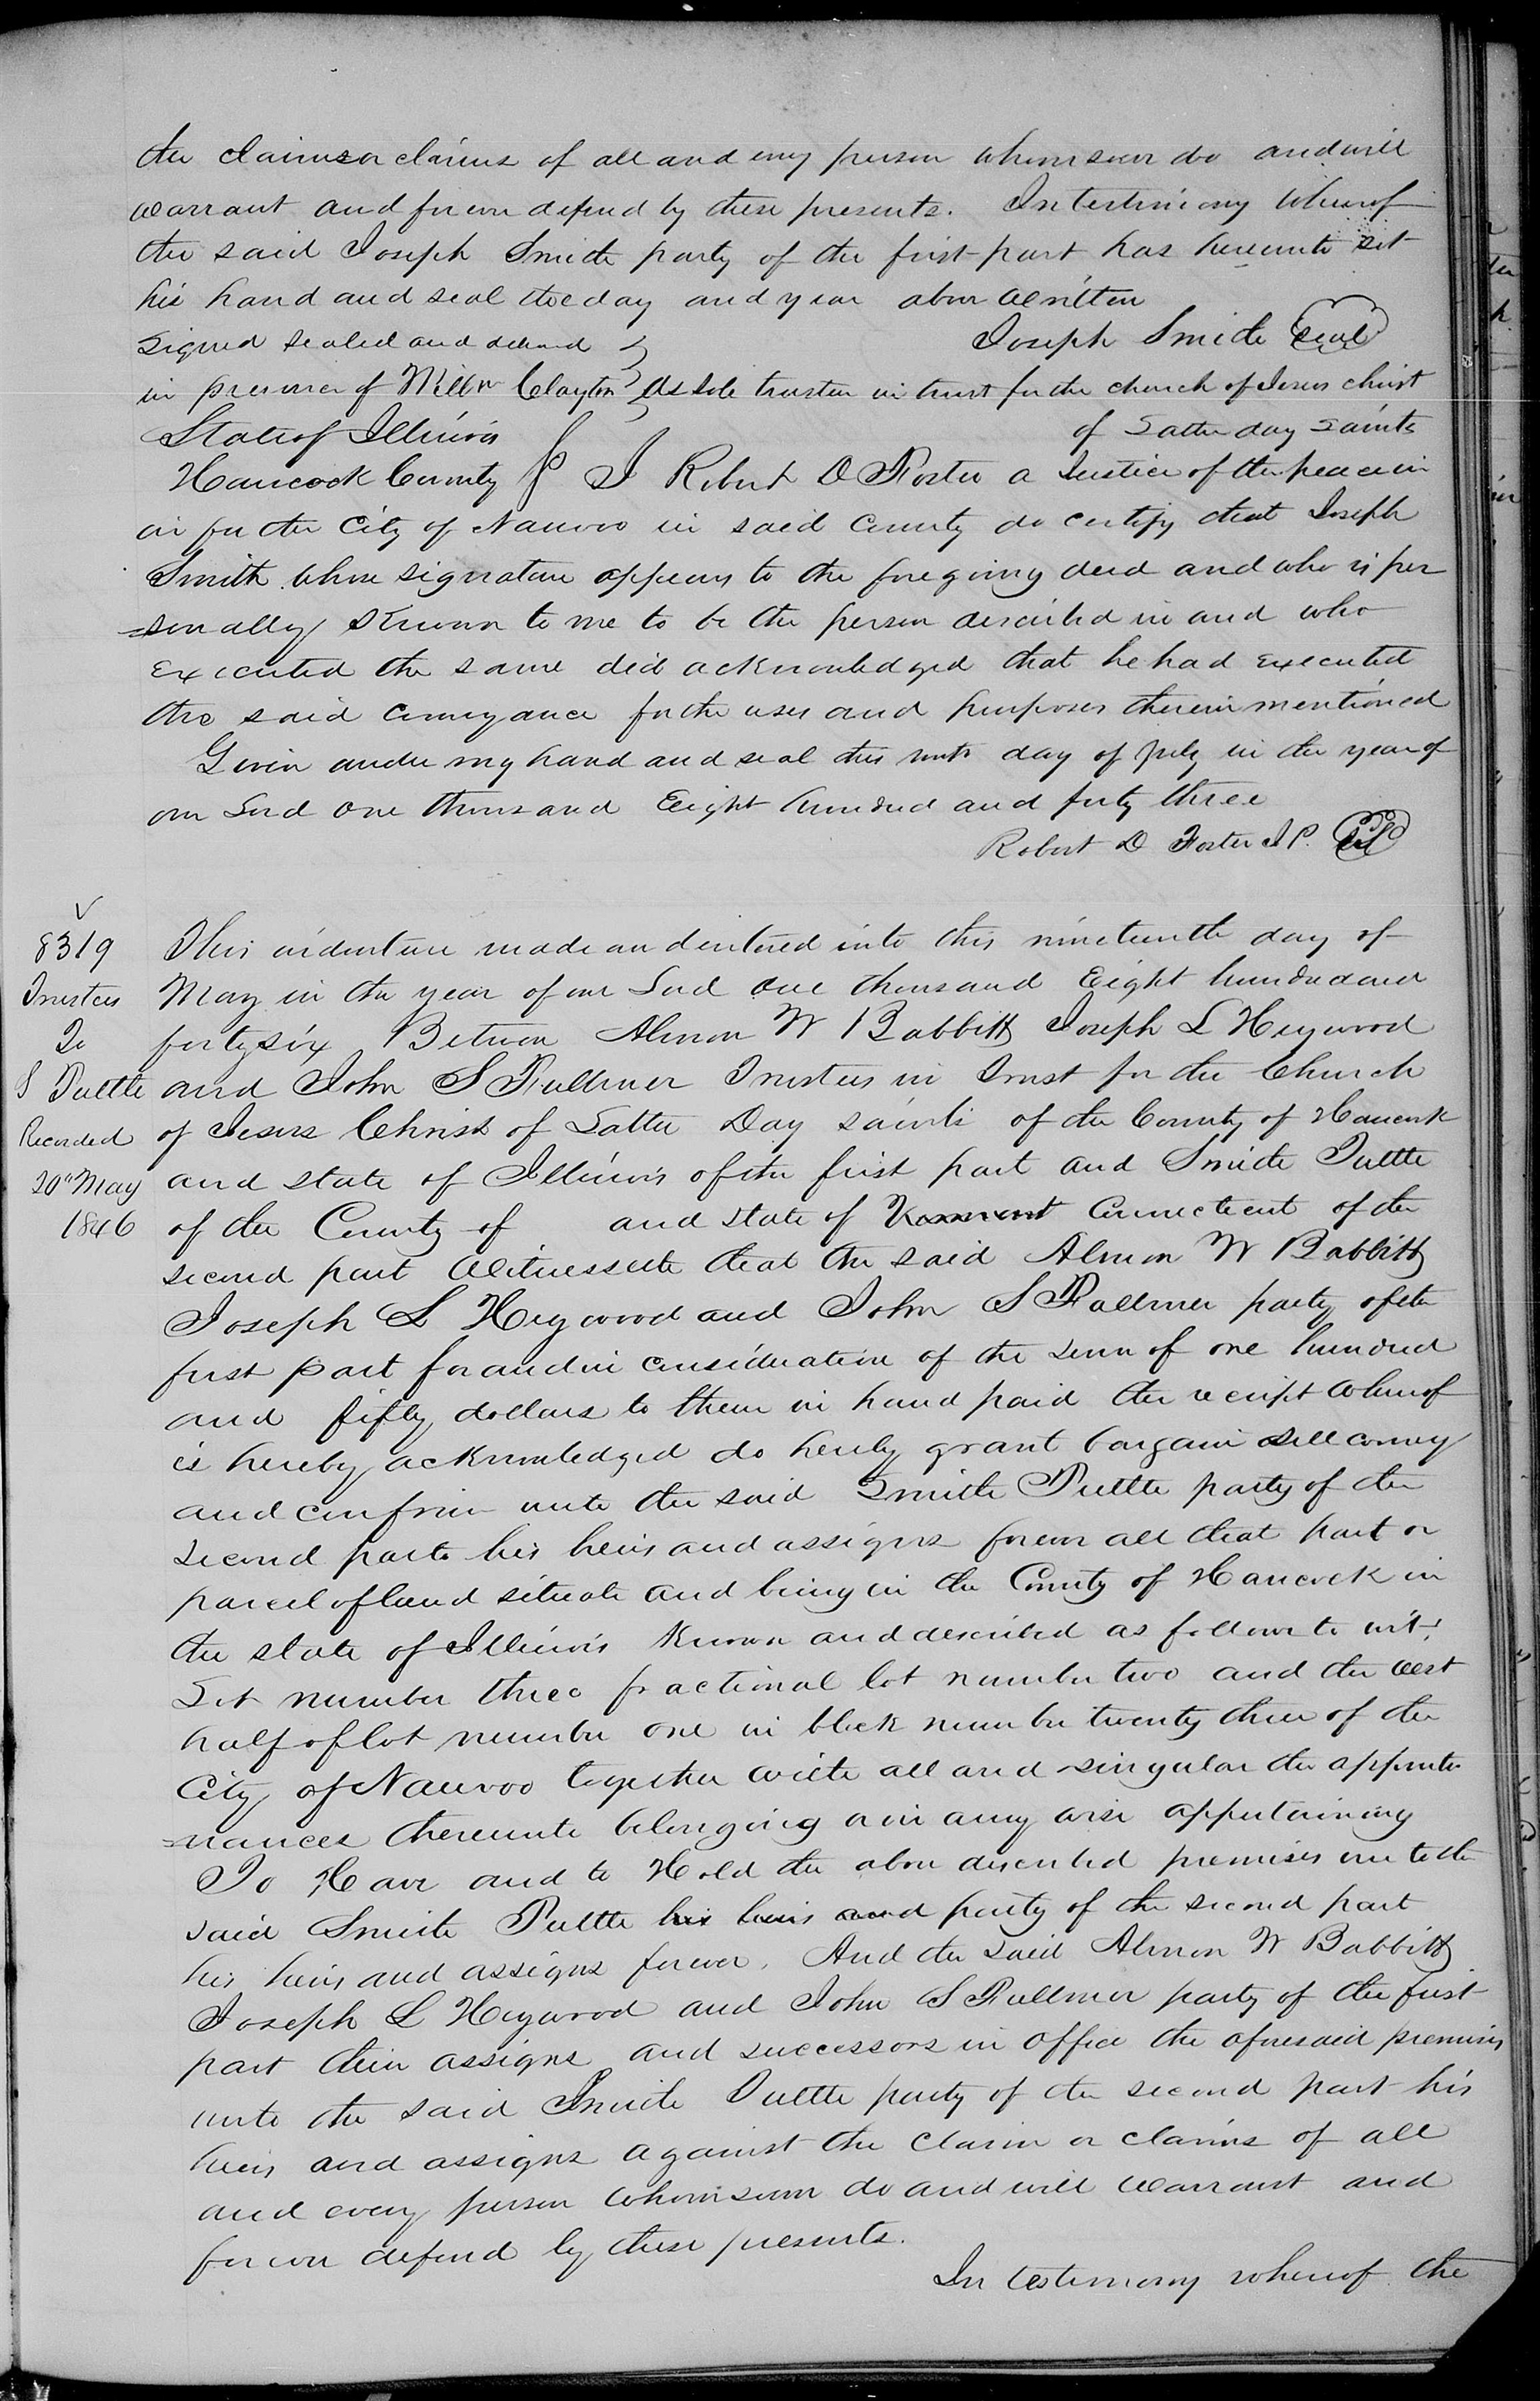 the claims or claims of all and every person whomsoever do and will
warrant and forever defend by these presents. In testimony whereof
the said Joseph Smith party of the first part has hereunto set
his hand and seal the day and year above written
Signed sealed and delivered } Joseph Smith (seal)
in presence of Willm Clayton } As sole trustee in trust for the church of Jesus christ
State of Illinois } of Latter day Saints
Hancock County } I Robert D Foster a Justice of the peace in
in for the City of Nauvoo in said County do certify that Joseph
Smith whose signature appears to the foregoing deed and who is per
=sonally known to me to be the person described in and who
executed the same did acknowledged that he had executed
the said conveyance for the uses and purposes therein mentioned
Given under my hand and seal this ninth day of July in the year of
our Lord one thousand Eight hundred and forty three
Robert D Foster J.P. (seal)
8319
Trustees
To
S Tuttle
Recorded
20th May
1846
This indenture made and entered into this nineteenth day of
May in the year of our Lord one thousand Eight hundred and
forty six Between Almon W Babbitt Joseph L Heywood
and John S Fullmer Trustees in Trust for the Church
of Jesus Christ of Latter Day saints of the County of Hancock
and state of Illinois of the first part and Smith Tuttle
of the County of and State of Vermont Connecticut of the
second part Witnesseth that the said Almon W Babbitt
Joseph L Heywood and John S Fullmer party of the
first part for and in consideration of the sum of one hundred
and fifty dollars to them in hand paid the receipt whereof
is hereby acknowledged do hereby grant bargain sell convey
and confirm unto the said Smith Tuttle party of the
second part his heirs and assigns forever all that part or
parcel of land situate and being in the County of Hancock in
the state of Illinois known and described as follows to wit:
Lot number three fractional lot number two and the west
half of lot number one in block number twenty three of the
City of Nauvoo together with all and singular the appurte
=nances thereunto belonging or in any wise appertaining
To Have and to Hold the above described premises unto the
said Smith Tuttle his heirs and party of the second part
his heirs and assigns forever. And the said Almon W Babbitt
Joseph L Heywood and John S Fullmer party of the first
part their assigns and successors in office the aforesaid premises
unto the said Smith Tuttle party of the second part his
heirs and assigns against the claim or claims of all
and every person whomsoever do and will warrant and
forever defend by these presents.
In testimony whereof the